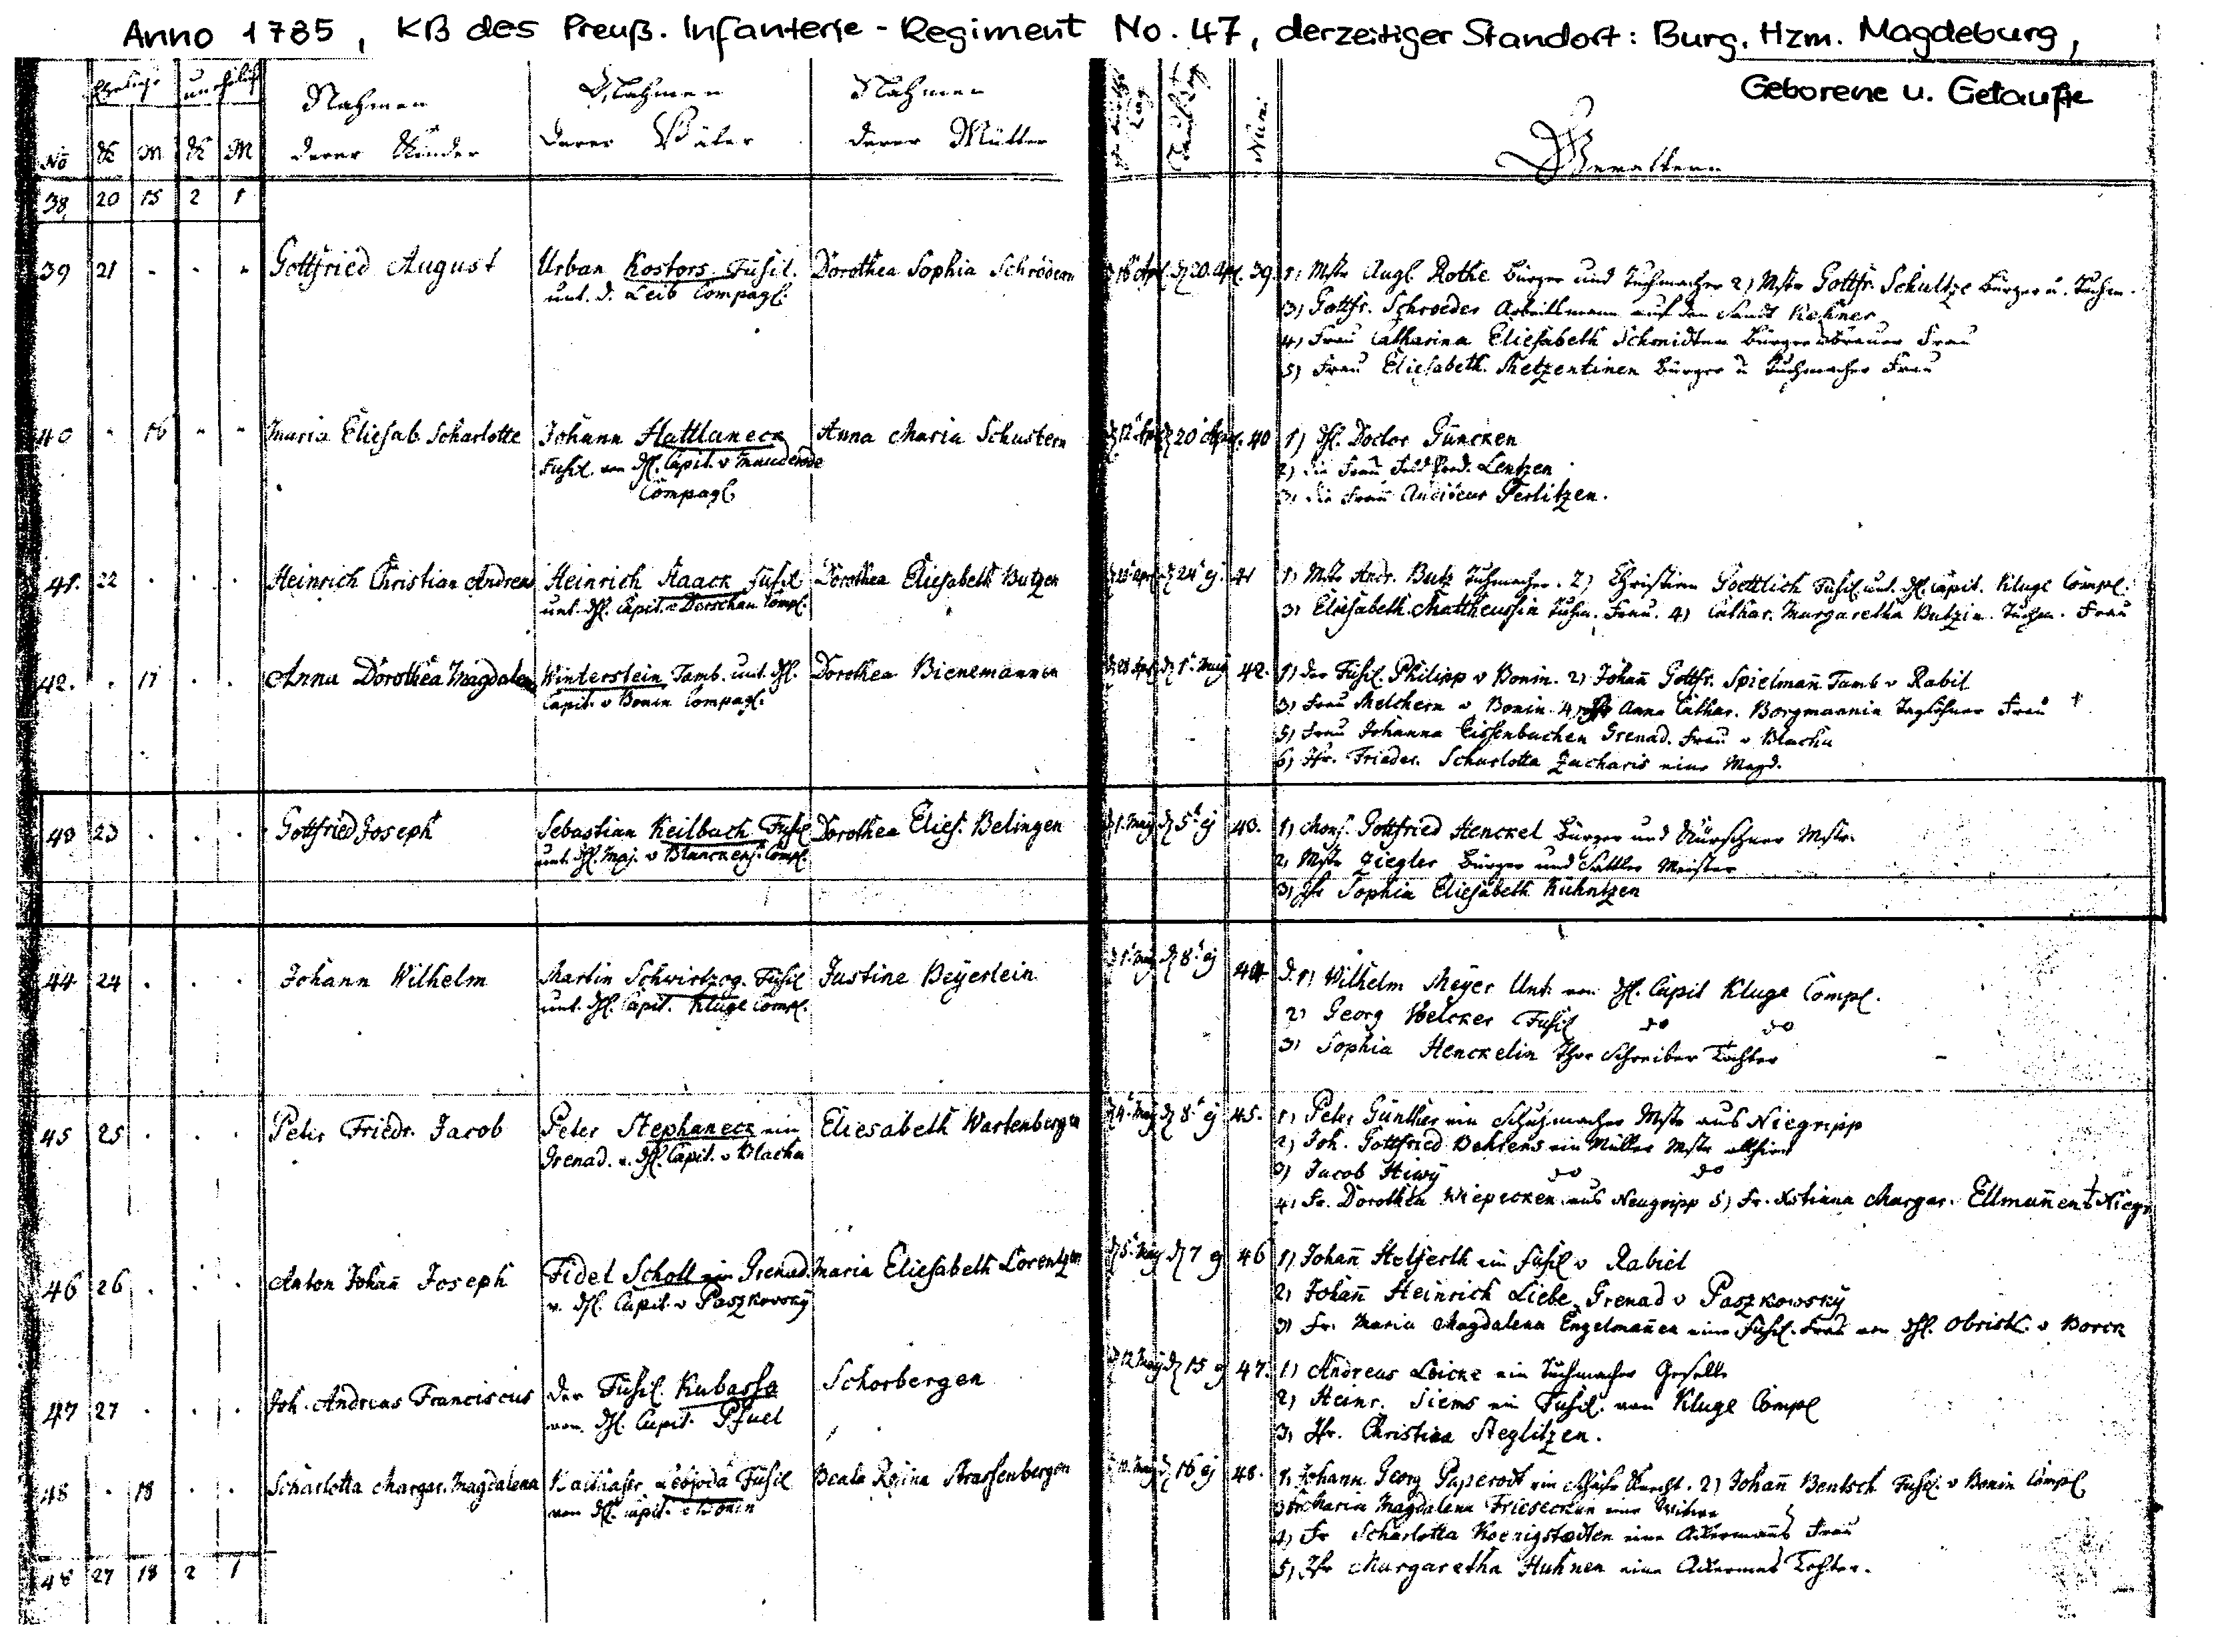 Anno 1785, KB des Preuß. Infanterie-Regiment No. 47, derzeitiger Standort: Burg, Hzm. Magdeburg,
Geborene u. Getaufte
Eheliche unehelich
Nahmen Nahmen Nahmen
No K M K M derer Kinder derer Väter derer Mütter Num: Gevattern
38 20 15 2 1
39 21 - - - Gottfried August Urban Kostors Fusil. Dorothea Sophia Schrödern d 16 Apr. d 20. Apr. 39. 1) Mstr Augl. Rothe Bürger und Tuchmacher 2) Mstr Gottfr. Schultze Bürger u. Tuchm.
unt. d. Leib Compagl. 3) Gottfr. Schroeder Arbeitsmann auf den
4) Frau Catharina Eliesabeth Schmidten Bürger u Brauer Frau
5) Frau Eliesabeth Bürger u Tuchmacher Frau
40 - 16 - - Maria Eliesab. Scharlotte Johann Hattlaneck Anna Maria Schustern d 12 Apr. d 20 Apr. 40 1) H. Doctor Güncken
Fusil. von H. Capit. v 2) die Frau Feld Pred. Lentzen
Compagl. 3) die Frau Auditeur Perlitzen.
41. 22 . . . Heinrich Christian Andreas Heinrich Haack Fusil Dorothea Eliesabeth Butzen d 24 ej. 41 1) Mstr Andr. Butz Tuchmacher. 2) Christian Goettlich Fusil. unt. H. Capit. Kluge Compl.
unt. H. Capit. v Dorschau Compl. 3) Eliesabeth Mattheussin Tuchm. Frau. 4) Cathar. Margaretha Butzin. Tuchm. Frau
42. . 17 . . Anna Dorothea Magdalena Winterstein Tamb. unt. H. Dorothea Bienemannen d 28 Apr. d 1. May 42. 1) der Fusil. Philipp v Bonin. 2) Johann Gottfr. Spielmann Tamb v Rabil
Capit. v Bonin Compagl. 3) Frau Melchern v Bonin 4) Anna Cathar. Borgmannin Taglöhner Frau
5) Frau Johanna Eissenbachen Grenad. Frau v Blacha
6) Jfr. Frieder. Scharlotta Zacharis eine Magd.
43 23 . . . Gottfried Joseph Sebastian Keilbach Fusil Dorothea Elies. Belingen d 1. May d 5 ej 43. 1) Mons. Gottfried Henckel Bürger und Kürschner Mstr.
unt. H. Maj. v Blanckens. Compl. 2) Mstr Ziegler Bürger und Sattler Meister
3) Jfr Sophia Eliesabeth Kühntzen
44 24 . . . Johann Wilhelm Martin Schwirtzog. Fusil Justine Beyerlein d 1. May d 8 ej 44 1) Wilhelm Meyer Unt. von H. Capit Kluge Compl.
unt. H. Capit. Kluge Compl. 2) Georg Welcker Fusil do do
3) Sophia Henckelin Thor Schreiber Tochter
45 25 . . . Peter Friedr. Jacob Peter Stephaneck ein Eliesabeth Wartenbergen d 4. May d 8 ej 45. 1) Peter Günther ein Schuhmacher Mstr aus Niegripp
Grenad. v. H. Capit. v Blacha 2) Joh. Gottfried Behrens ein Müller Mstr allhier
3) Jacob Hiwy do do
4) Fr. Dorothea Wiepecken aus Neugripp 5) Fr. Xstiana Margar. Ellmannen
46 26 . . . Anton Johann Joseph Fidel Scholl ein Grenad. Maria Eliesabeth Lorentzen d 5. May d 7 ej 46 1) Johann Helferth ein Fusil v Rabiel
v. H. Capit. v Paszkowsky 2) Johann Heinrich Liebe Grenad v Paszkowsky
3) Fr. Maria Magdalena Engelmannen eine Fusil. Frau von H. Obrist. v Borck
47 27 . . . Joh. Andreas Franciscus der Fusil. Kubassa Schorbergen d 12 May d 15 ej 47. 1) Andreas Loicke ein Tuchmacher Geselle
von H. Capit. Pfuel 2) Heinr. Siems ein Fusil. von Kluge Compl
3) Jfr. Christina Steglitzen.
48 . 18 . . Scharlotta Margar. Magdalena Lebjoda Fusil Beata Rosina Strassenbergen d 16 ej 48. 1) Johann Georg Paperodt ein Knecht. 2) Johann Bentsch Fusil. v Bonin Compl
von H. Capit. v Bonin 3) Fr Maria Magdalena Friesecken eine Witwe
4) Fr Scharlotta Koenigstedten eine Ackermanns Frau
5) Jfr Margaretha Huhnen eine Ackermans Tochter.
48 27 18 2 1